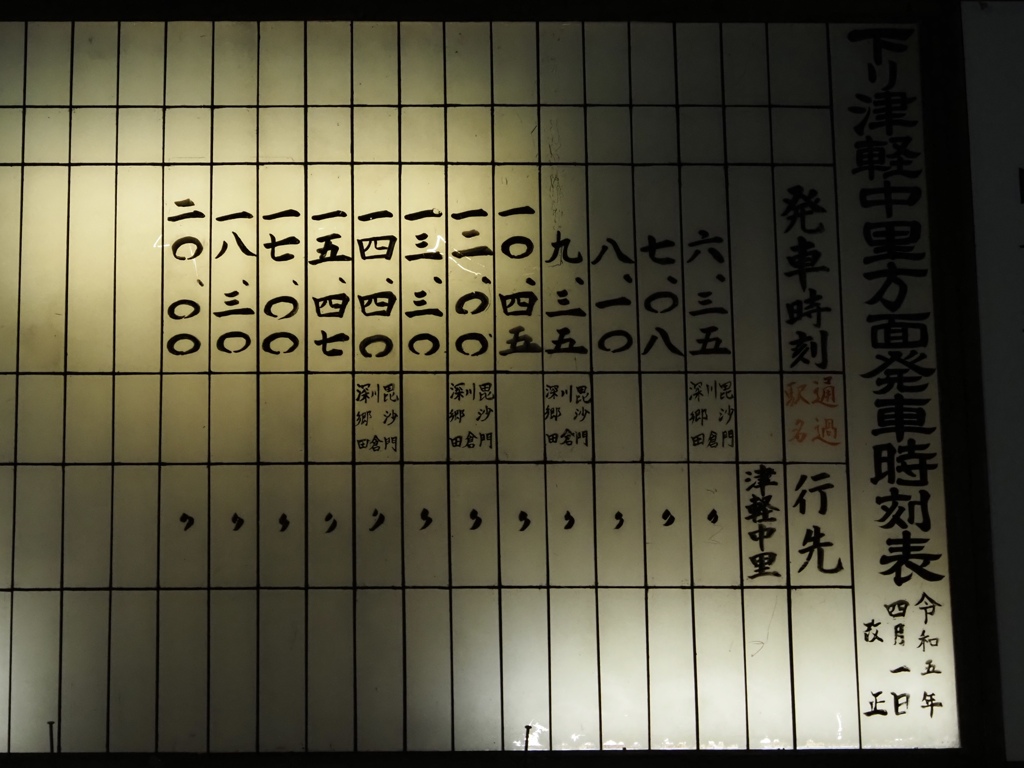 下り津軽中里方面発車時刻表
令和五年
四月一日
改正
発車時刻
通過
駅名
行先
津軽中里
六、三五
毘沙門
川倉
深郷田
〃
七、〇八
〃
八、一〇
〃
九、三五
毘沙門
川倉
深郷田
〃
一〇、四五
〃
一二、〇〇
毘沙門
川倉
深郷田
〃
一三、三〇
〃
一四、四〇
毘沙門
川倉
深郷田
〃
一五、四七
〃
一七、〇〇
〃
一八、三〇
〃
二〇、〇〇
〃